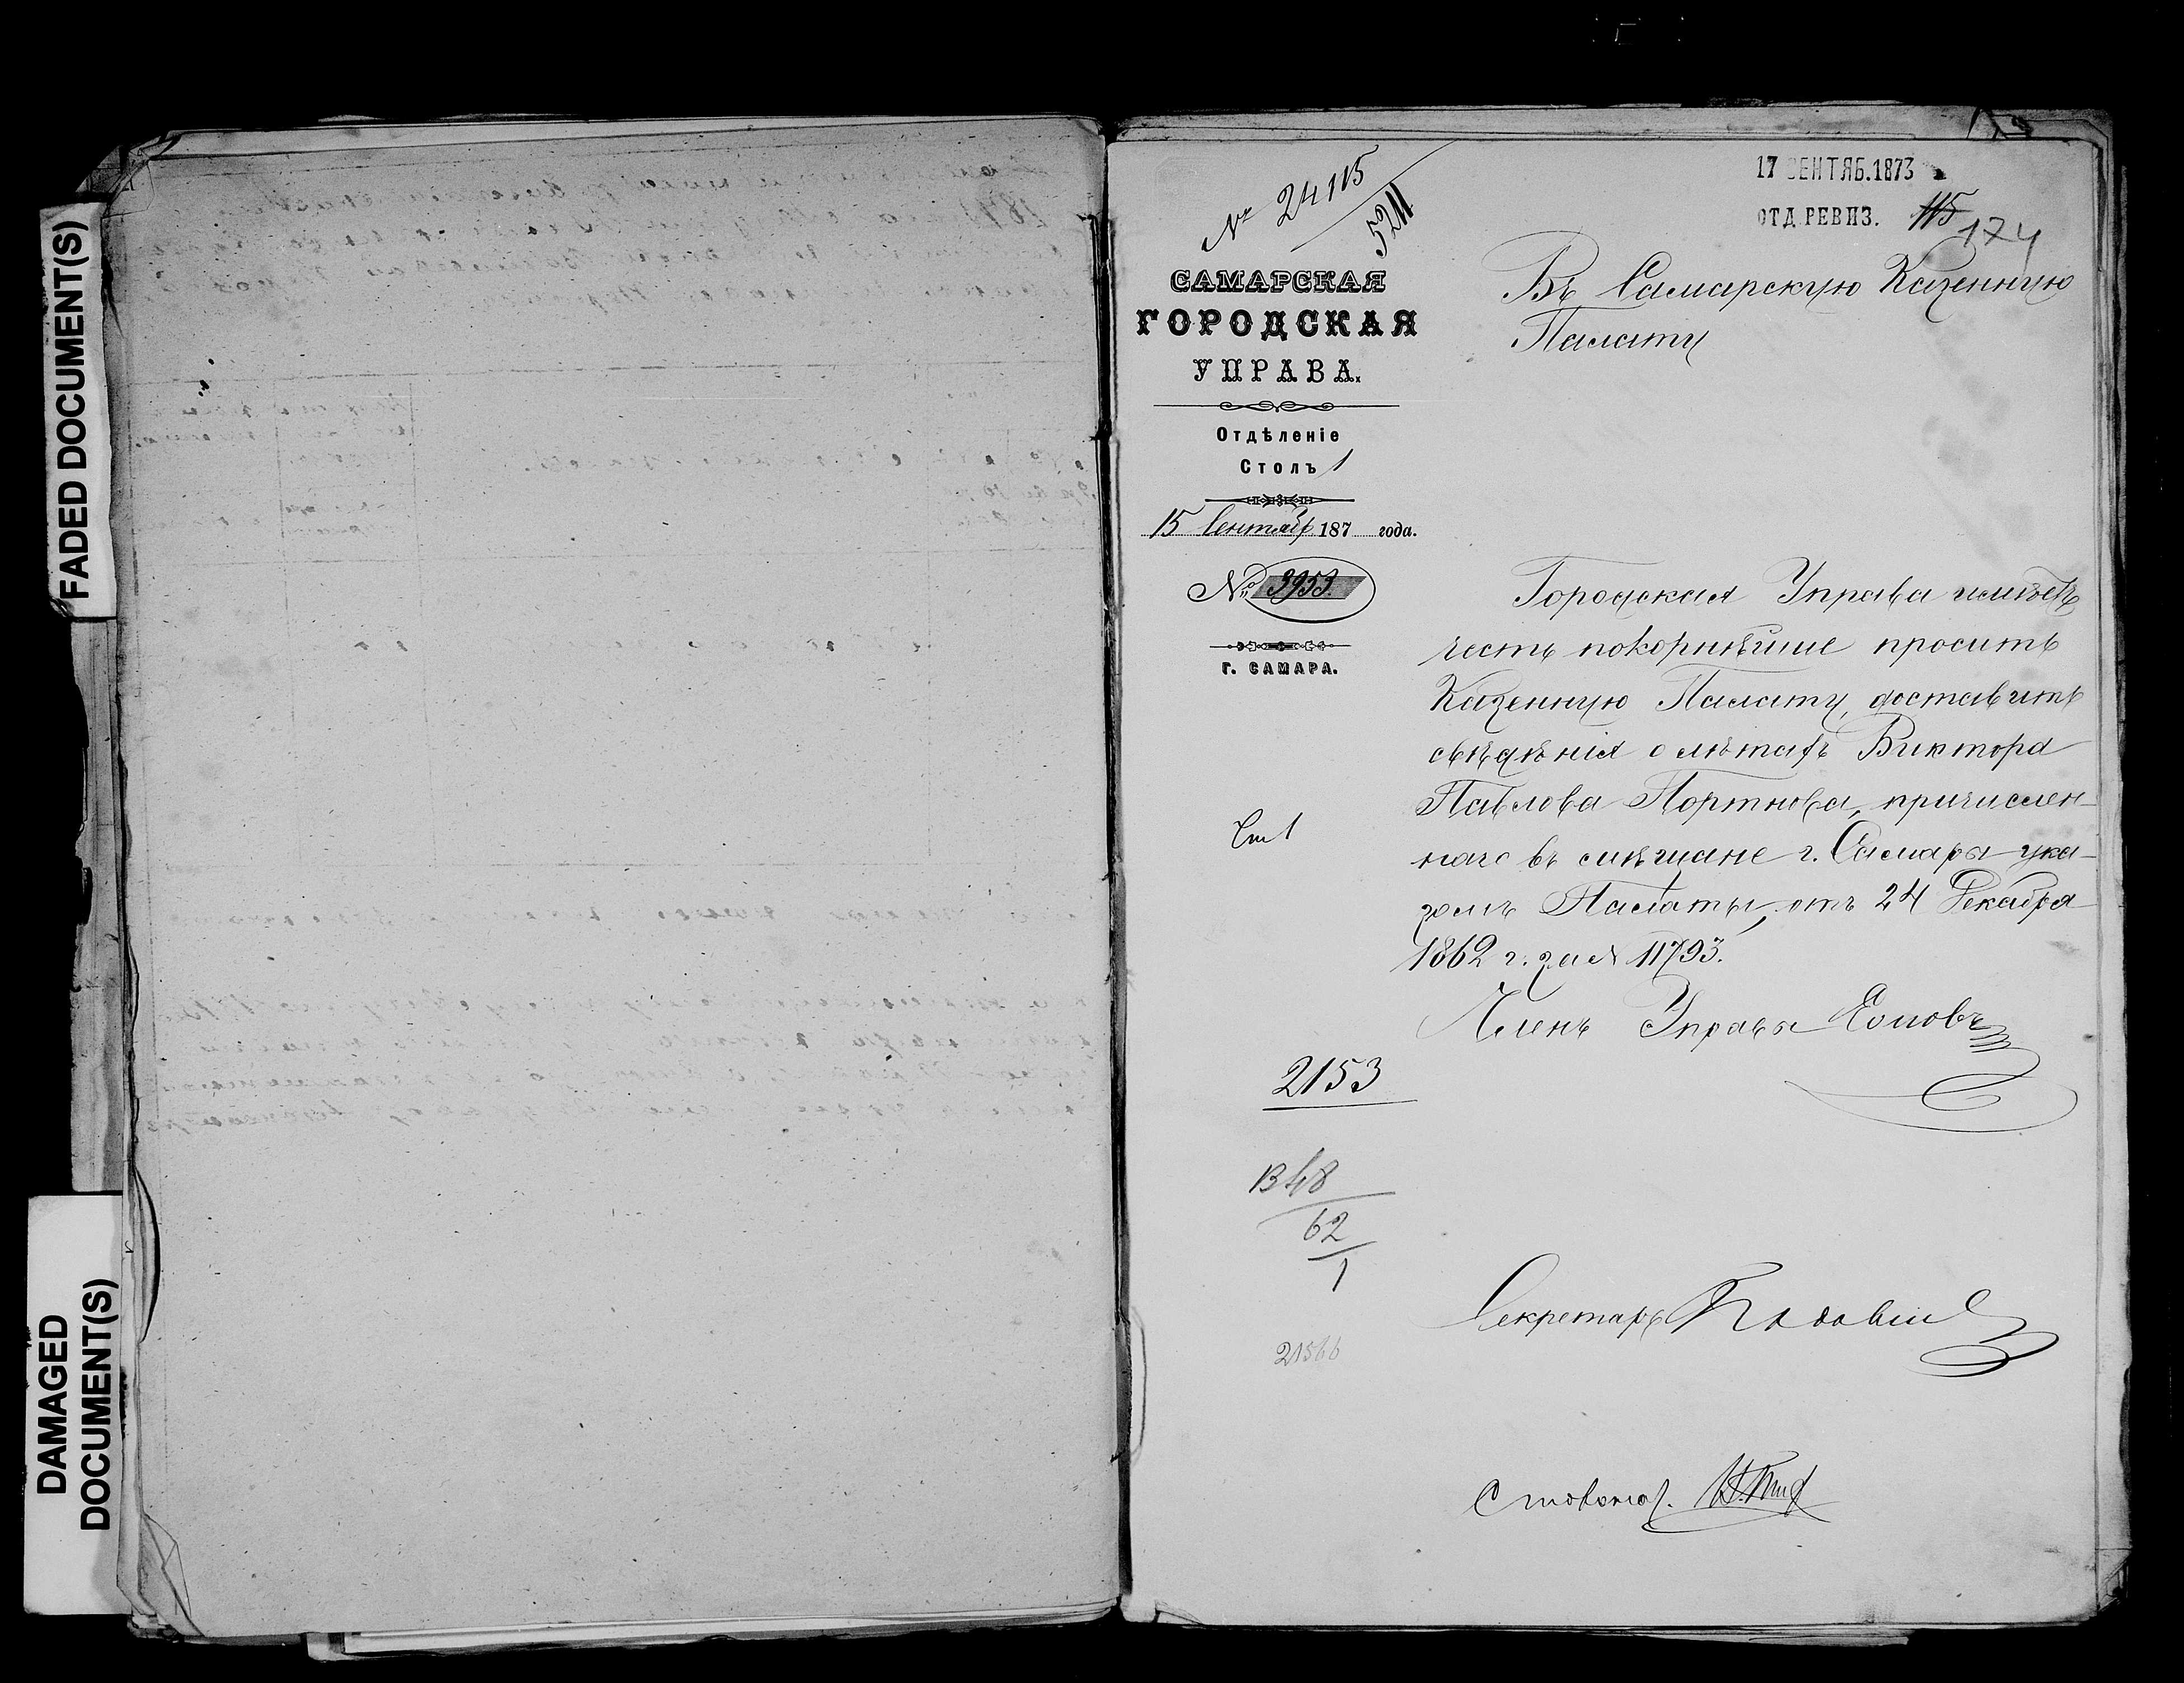 FADED DOCUMENT(S)
DAMAGED
DOCUMENT(S)
№ 24115
5211
17 СЕНТЯБ.1873
ОТД. РЕВИЗ. 115
174
САМАРСКАЯ
ГОРОДСКАЯ
УПРАВА.
Отдѣленіе
Столъ 1
15 Сентябр 187 года.
№ 3953.
Г. САМАРА.
Въ Самарскую Казенную
Палату
Городская Управа имѣетъ
честь покорнѣйше просить
Казенную Палату, доставить
свѣдѣнія о лѣтахъ Виктора
Павлова Портнова, причислен-
наго въ мѣщане г. Самары ука-
зомъ Палаты, отъ 24 Декабря
1862 г. за № 11793.
Членъ Управы
Ст 1
2153
В 48
62
1
21566
Секретарь
Столонач.